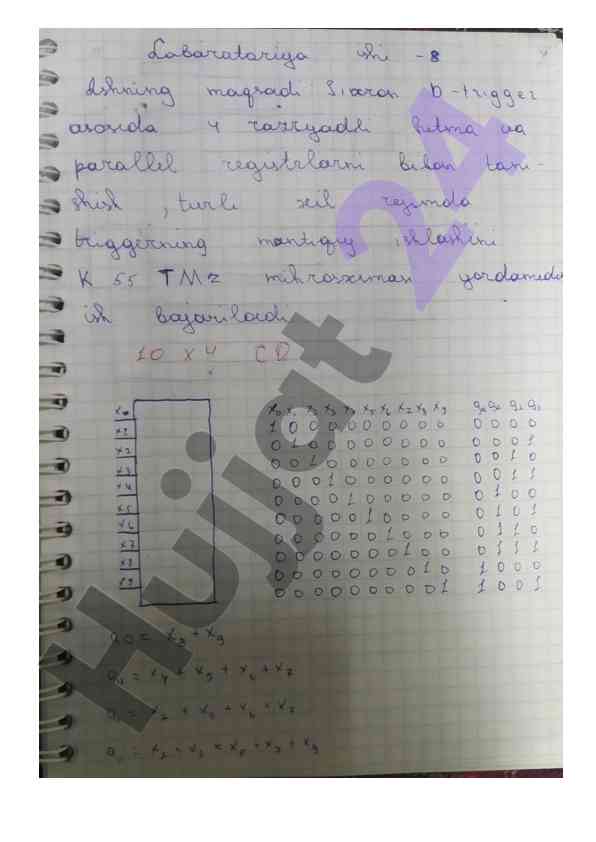 Labaratariya ishi - 8
Ishning maqsadi Sixron D-trigger
asosida 4 razryadli hilma va
parallel registrlarni bilan tani-
shish, turli xil rejimda
triggerning mantiqiy ishlashini
K 55 TM2 mikrosxemasi yordamida
ish bajariladi
10 x 4 CD
x0
x1
x2
x3
x4
x5
x6
x7
x8
x0 x1 x2 x3 x4 x5 x6 x7 x8 x9
1 0 0 0 0 0 0 0 0 0 0 0 0 0
0 1 0 0 0 0 0 0 0 0 0 0 0 1
0 0 1 0 0 0 0 0 0 0 0 0 1 0
0 0 0 1 0 0 0 0 0 0 0 0 1 1
0 0 0 0 1 0 0 0 0 0 0 1 0 0
0 0 0 0 0 1 0 0 0 0 0 1 0 1
0 0 0 0 0 0 1 0 0 0 0 1 1 0
0 0 0 0 0 0 0 1 0 0 0 1 1 1
0 0 0 0 0 0 0 0 1 0 1 0 0 0
0 0 0 0 0 0 0 0 0 1 1 0 0 1
= x8 + x9
= x4 + x5 + x6 + x7
= x2 + x3 + x6 + x7
Hujjat 24